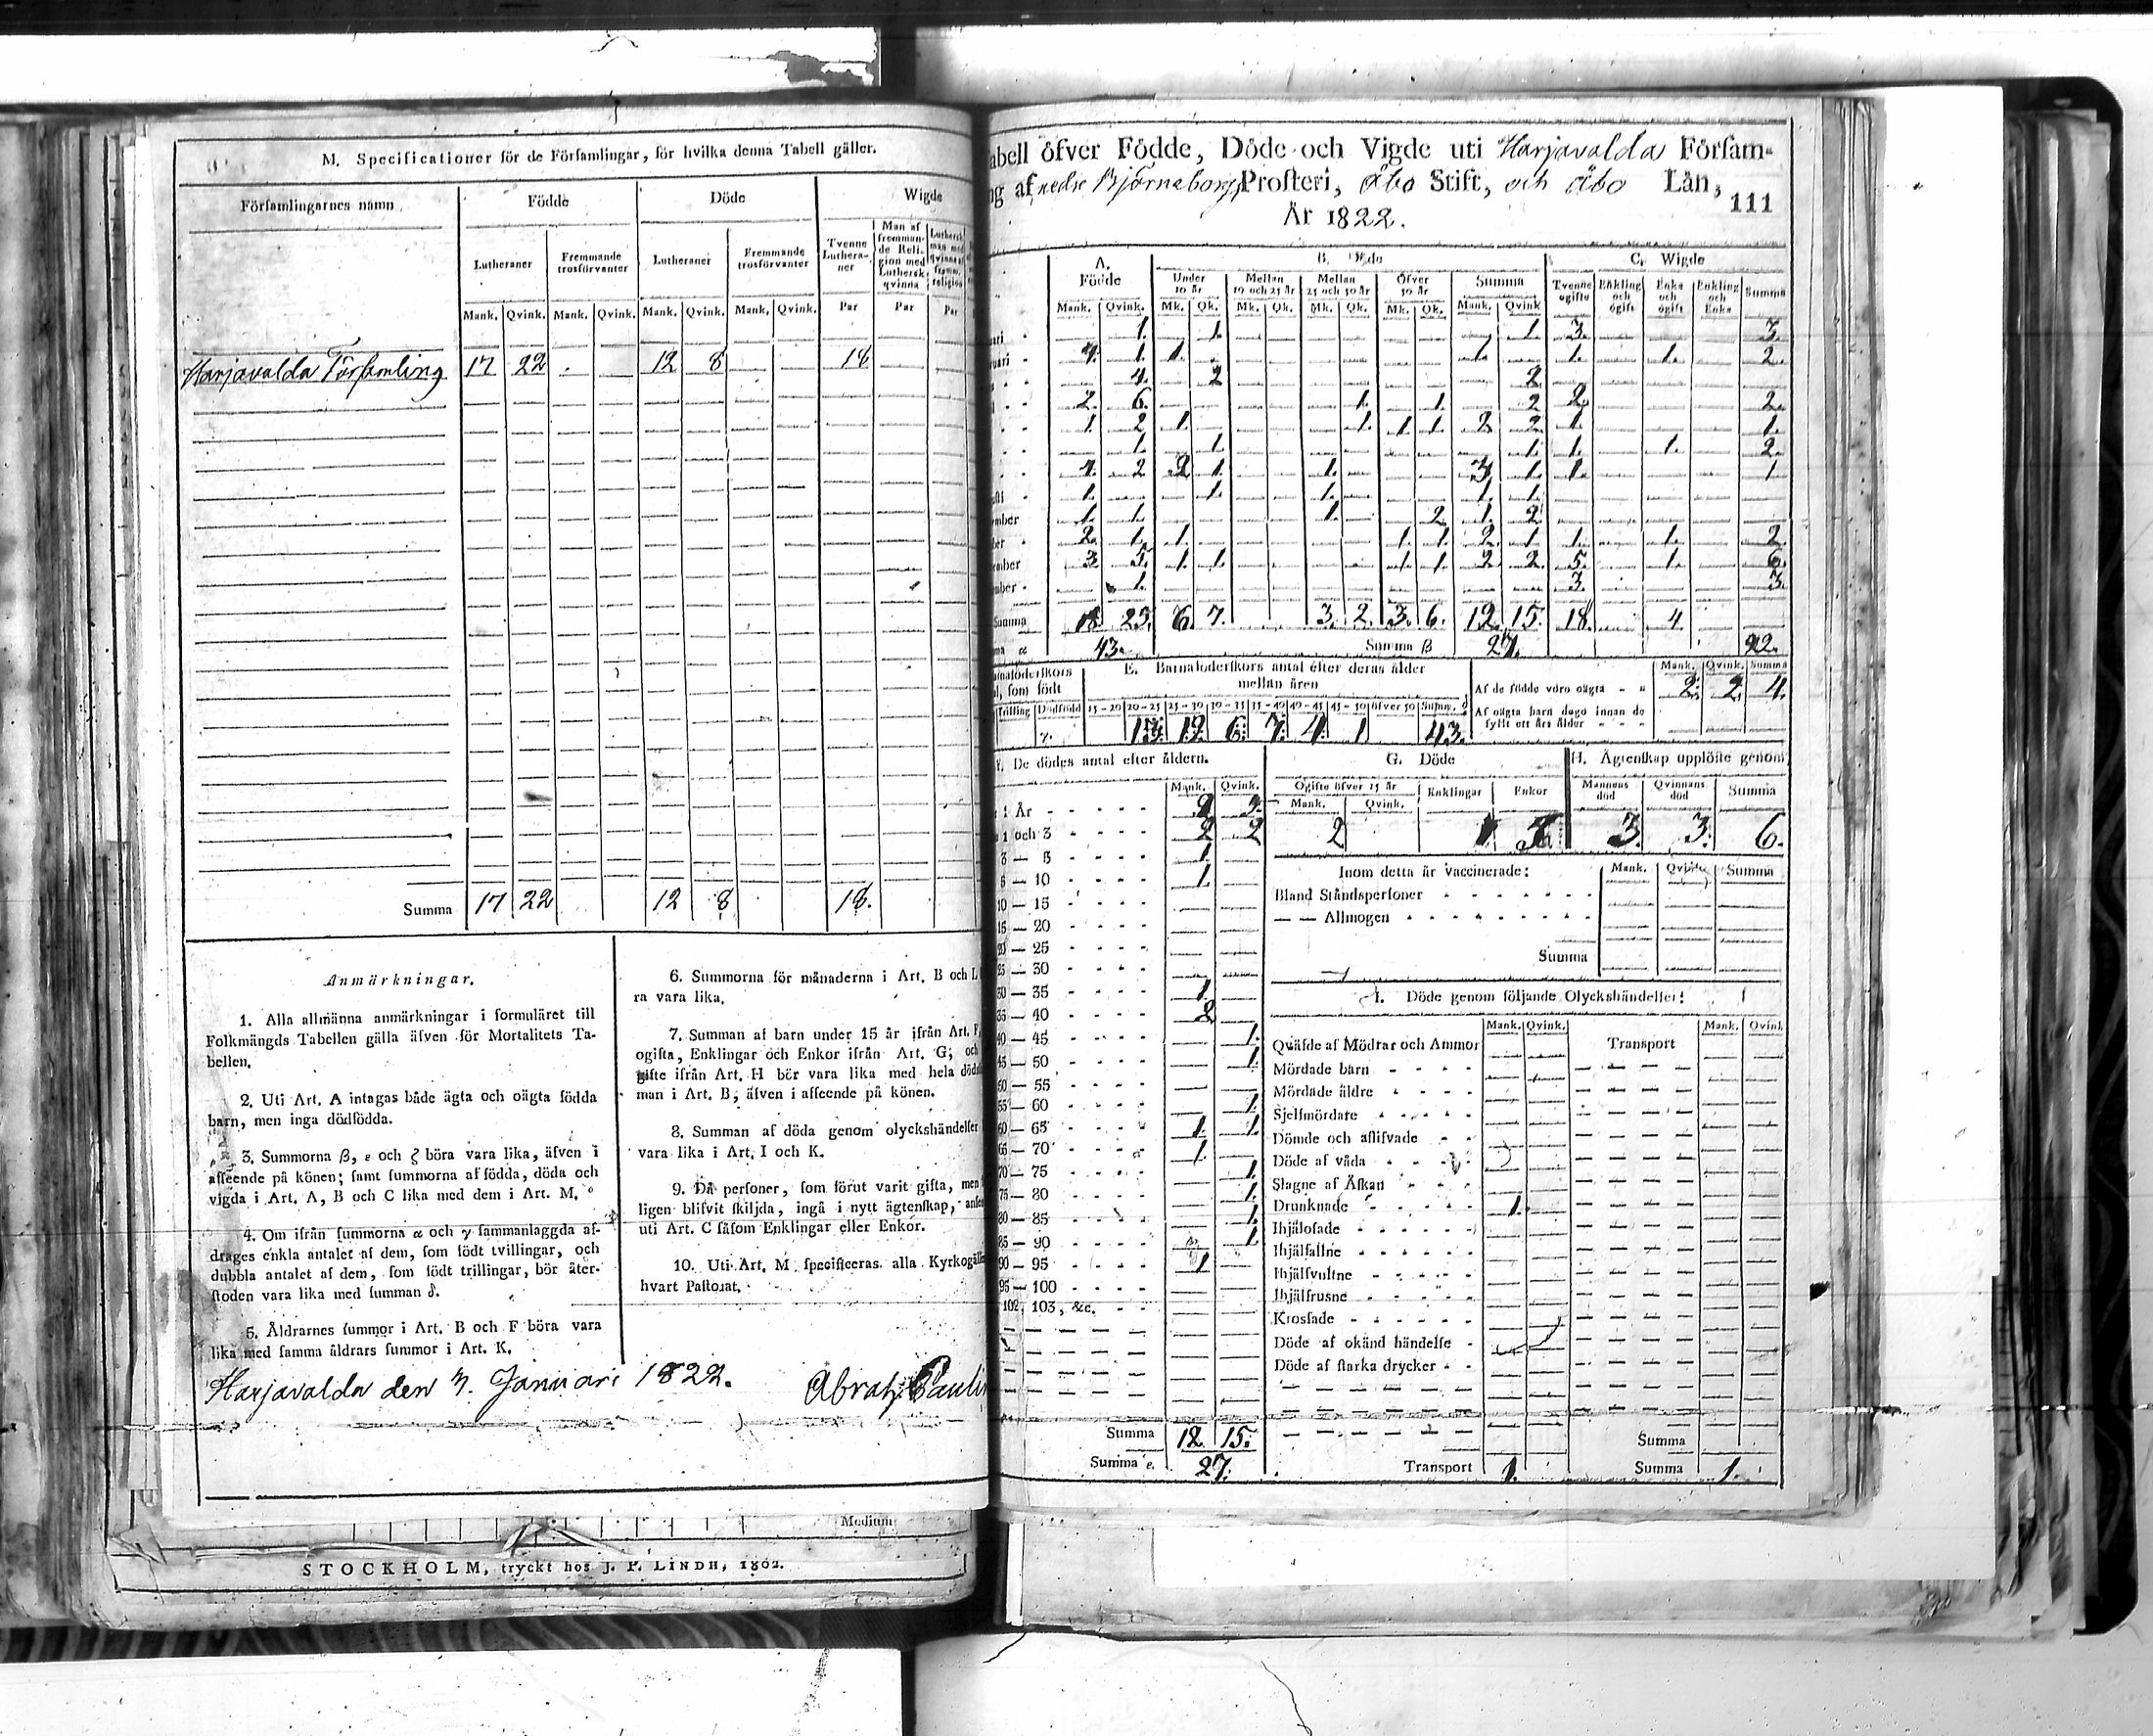 M. Specificationer för de Församlingar, för hvilka denna Tabell gäller.
Församlingarnes namn Födde Döde Wigde
Lutheraner Fremmande trosförvanter Lutheraner Fremmande trosförvanter Tvenne Luthera-ner Man af fremman-de Reli-gion med Luthersk. qvinna
Mank. Qvink. Mank. Qvink. Mank. Qvink. Mank. Qvink. Par Par Par
Harjavalda Församling 17 22 12 8 18
Summa 17 22 12 8 18.
Anmärkningar.
1. Alla allmänna anmärkningar i formuläret till
Folkmängds Tabellen gälla äfven för Mortalitets Ta-
bellen.
2. Uti Art. A intagas både ägta och oägta födda
barn, men inga dödfödda.
3. Summorna β, ε och ζ böra vara lika, äfven i
affeende på könen; samt summorna af födda, döda och
vigda i Art. A, B och C lika med dem i Art. M.
4. Om ifrån summorna α och γ sammanlaggda af-
drages enkla antalet af dem, som födt tvillingar, och
dubbla antalet af dem, som födt trillingar, bör åter-
stoden vara lika med summan δ.
5. Åldrarnes summor i Art. B och F böra vara
lika med samma åldrars summor i Art. K.
6. Summorna för månaderna i Art. B och L
ra vara lika.
7. Summan af barn under 15 år ifrån Art. F,
ogifta, Enklingar och Enkor ifrån Art. G; och
gifte ifrån Art. H bör vara lika med hela döds
man i Art. B; äfven i affeende på könen.
8. Summan af döda genom olyckshändelser
vara lika i Art. I och K.
9. Då personer, som förut varit gifta, men
ligen blifvit skiljda, ingå i nytt ägtenskap, anse
uti Art. C såsom Enklingar eller Enkor.
10. Uti Art. M specificeras alla Kyrkogäll
hvart Pastorat.
Harjavalda den 7. Januari 1822. Abrah. Paulin
Medium
STOCKHOLM, tryckt hos J. P. LINDH, 1802.
abell öfver Födde, Döde och Vigde uti Harjavalda Församl-
ng af nedre Björneborgs Prosteri, Åbo Stift, och Åbo Län,
År 1822.
111
A. Födde B. Döde C. Wigde
Under 10 år Mellan 10 och 25 år Mellan 25 och 50 år Öfver 50 år Summa Tvenne ogifte Enkling och ogift Enka och ogift Enkling och Enka Summa
Mank. Qvink. Mk. Qk. Mk. Qk. Mk. Qk. Mk. Qk. Mank. Qvink
1. 1. 1. 3. 3.
4. 1. 1. 1. 1. 1. 2.
4. 2 2.
2. 6. 1. 1. 2 2. 2.
1. 2 1. 1. 1. 1. 2 2. 1. 1.
1. 1. 1. 1. 1. 2.
4. 2 2 1. 1. 3. 1. 1. 1
1. 1. 1. 1. 1.
ember 1. 1. 1. 2 1. 2.
ber 2. 1. 1. 1. 1. 2. 1. 1. 1. 2.
ember 3 5. 1. 1. 1. 1. 2 2. 5. 1. 6.
mber 1. 3 3.
Summa 18 25. 6. 7. 3. 2. 3. 6. 12. 15. 18. 4.
α 43. Summa β 27. 22.
E. Barnaföderskors antal efter deras ålder
mellan åren
som födt
Trilling Dödfödd 15-20 20-25 25-30 30-35 35-40 40-45 45-50 öfver 50 Summ. δ
13. 12. 6. 7. 4. 1 43.
Mank. Qvink. Summa
Af de födde voro oägta 2. 2. 4.
Af oägta barn dogo innan de
fyllt ett års ålder
F. De dödes antal efter åldern.
Mank. Qvink.
1 År
1 och 3 2 2
3 — 5 1.
5 — 10 1.
10 — 15
15 — 20
20 — 25
25 — 30
30 — 35 1.
35 — 40 2
40 — 45 1.
45 — 50 1.
50 — 55
55 — 60 1.
60 — 65 1. 1.
65 — 70 1.
70 — 75 1.
75 — 80 1.
80 — 85 1.
85 — 90 1.
90 — 95 1
95 — 100
102, 103, &c.
Summa 12 15.
Summa ε. 27.
G. Döde
Ogifte öfver 15 år Enklingar Enkor
Mank. Qvink.
2 1 3
H. Ägtenskap upplöste genom
Mannens död Qvinnans död Summa
3. 3. 6.
Inom detta år vaccinerade: Mank. Qvink. Summa
Bland Ståndspersoner
— — Allmogen
Summa
I. Döde genom följande Olyckshändelser:
Mank. Qvink. Mank. Qvink.
Qväfde af Mödrar och Ammor Transport
Mördade barn
Mördade äldre
Sjelfmördare
Dömde och aflifvade
Döde af våda
Slagne af Åskan
Drunknade 1.
Ihjälosade
Ihjälfallne
Ihjälsvultne
Ihjälfrusne
Krossade
Döde af okänd händelse
Döde af starka drycker
Summa
Transport 1. Summa 1.